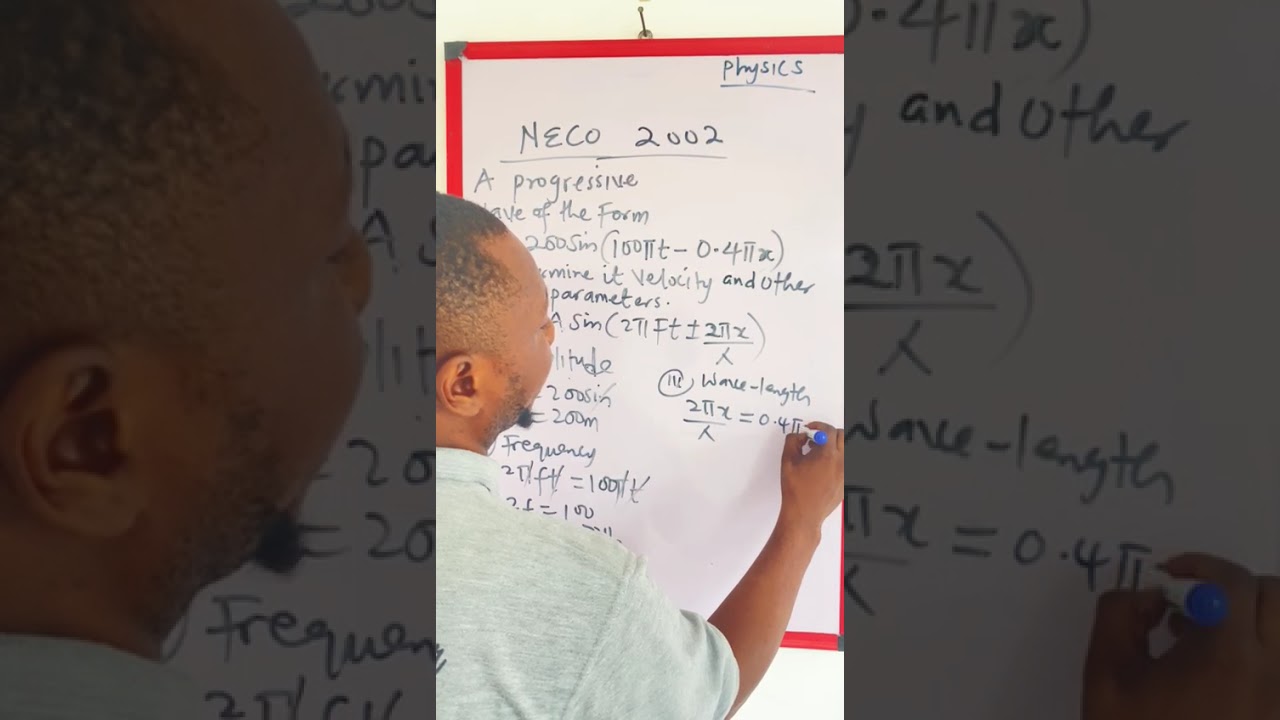 Physics
NECO 2002
A progressive
of the Form
200sin(100πt - 0.4πx)
it velocity and other
parameters.
A Sin(2πFt ± 2πx/λ)
= 200sin
= 200m
Frequency
2πft = 100πt
2f = 100
(III) Wave-length
2πx/λ = 0.4π